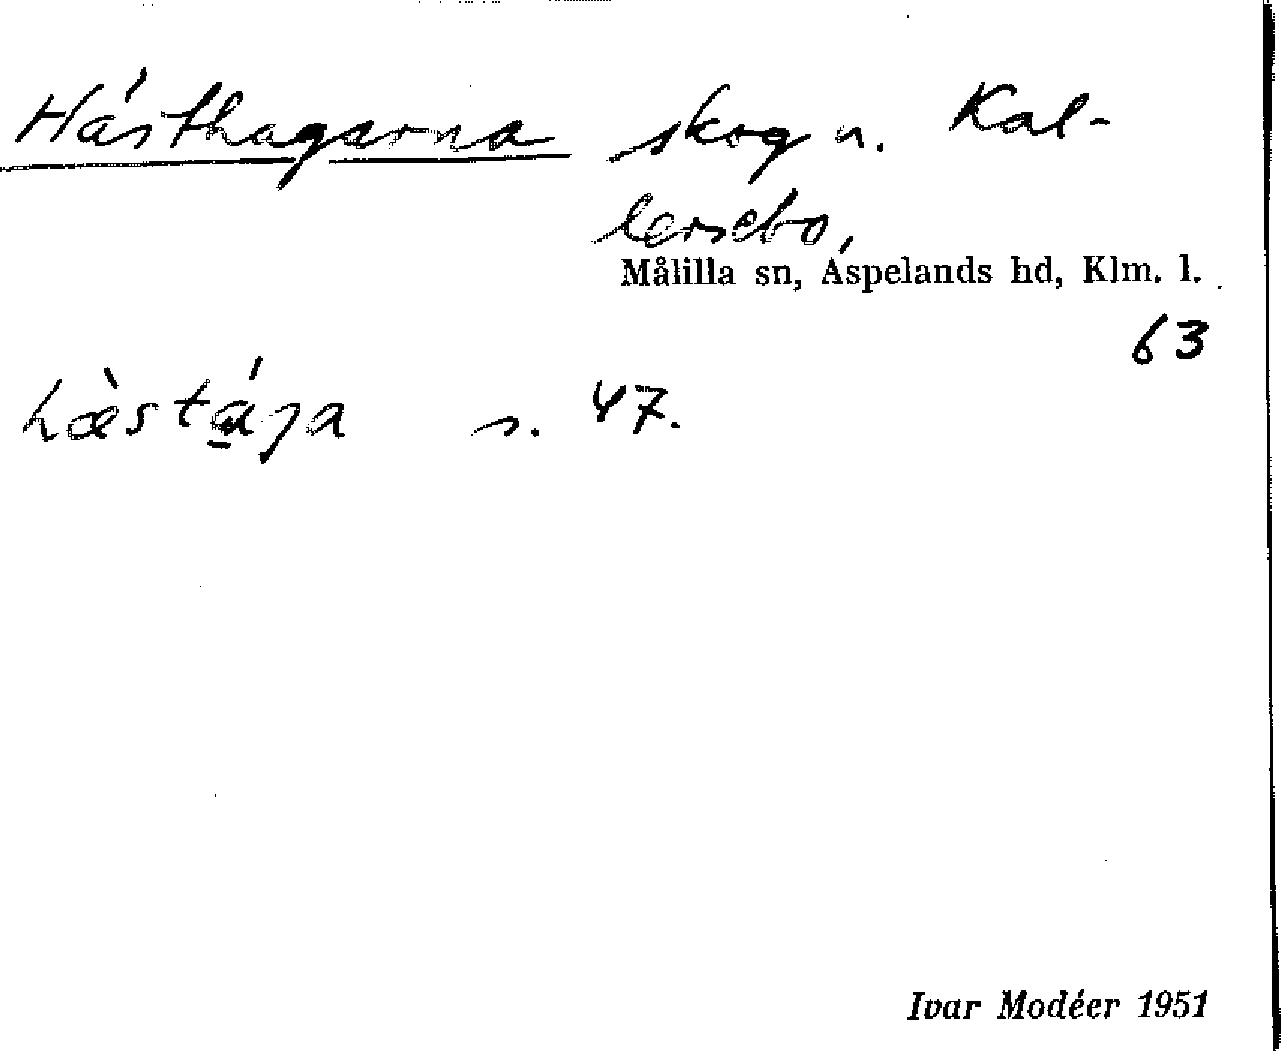 Hästhagarna skog u. Kal-
lersebo,
Målilla sn, Aspelands hd, Klm. l.
63
hæ̀stá̱ga s. 47.
Ivar Modéer 1951